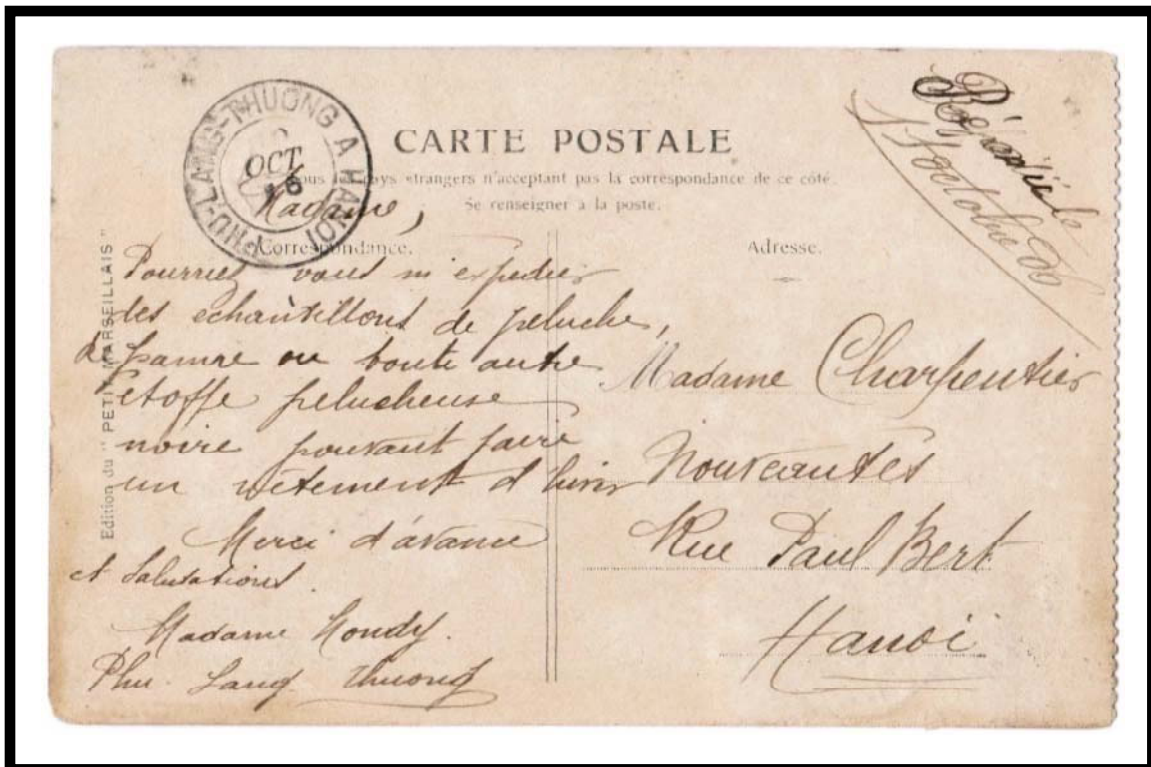 PHU-LANG-THUONG A HANOI
OCT.
CARTE POSTALE
Tous les pays étrangers n'acceptant pas la correspondance de ce côté.
Se renseigner à la poste.
Correspondance.
Adresse.
Edition du "PETIT MARSEILLAIS"
Madame,
Pourriez vous m'expedier
des echantillons de peluche,
de panne ou toute autre
étoffe pelucheuse
noire pouvant faire
un vêtement d'hiver
Merci d'avance
et Salutations.
Madame
Phu. Lang Thuong
Madame Charpentier
Nouveautés
Rue Paul Bert
Hanoi
Répondu le
octobre 06